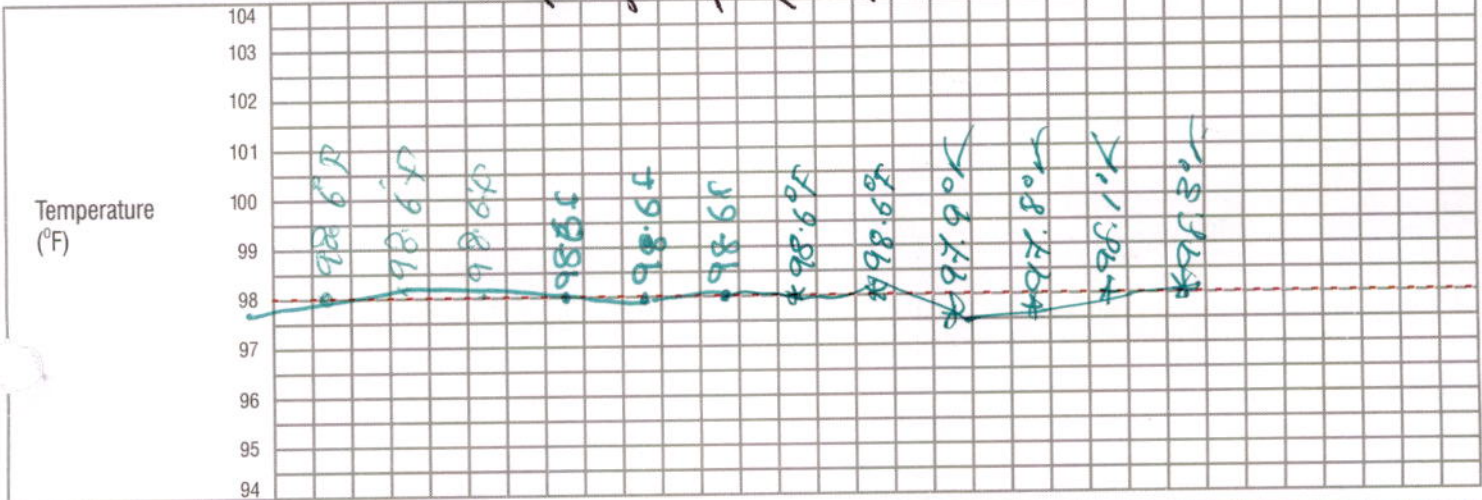 104
103
102
101
100
99
98
97
96
95
94
Temperature
(°F)
98.6°F
98.6°F
98.6°F
98.6°F
98.6°F
98.6F
98.6°F
98.6°F
97.6°F
97.8°F
98.1°F
98.8°F